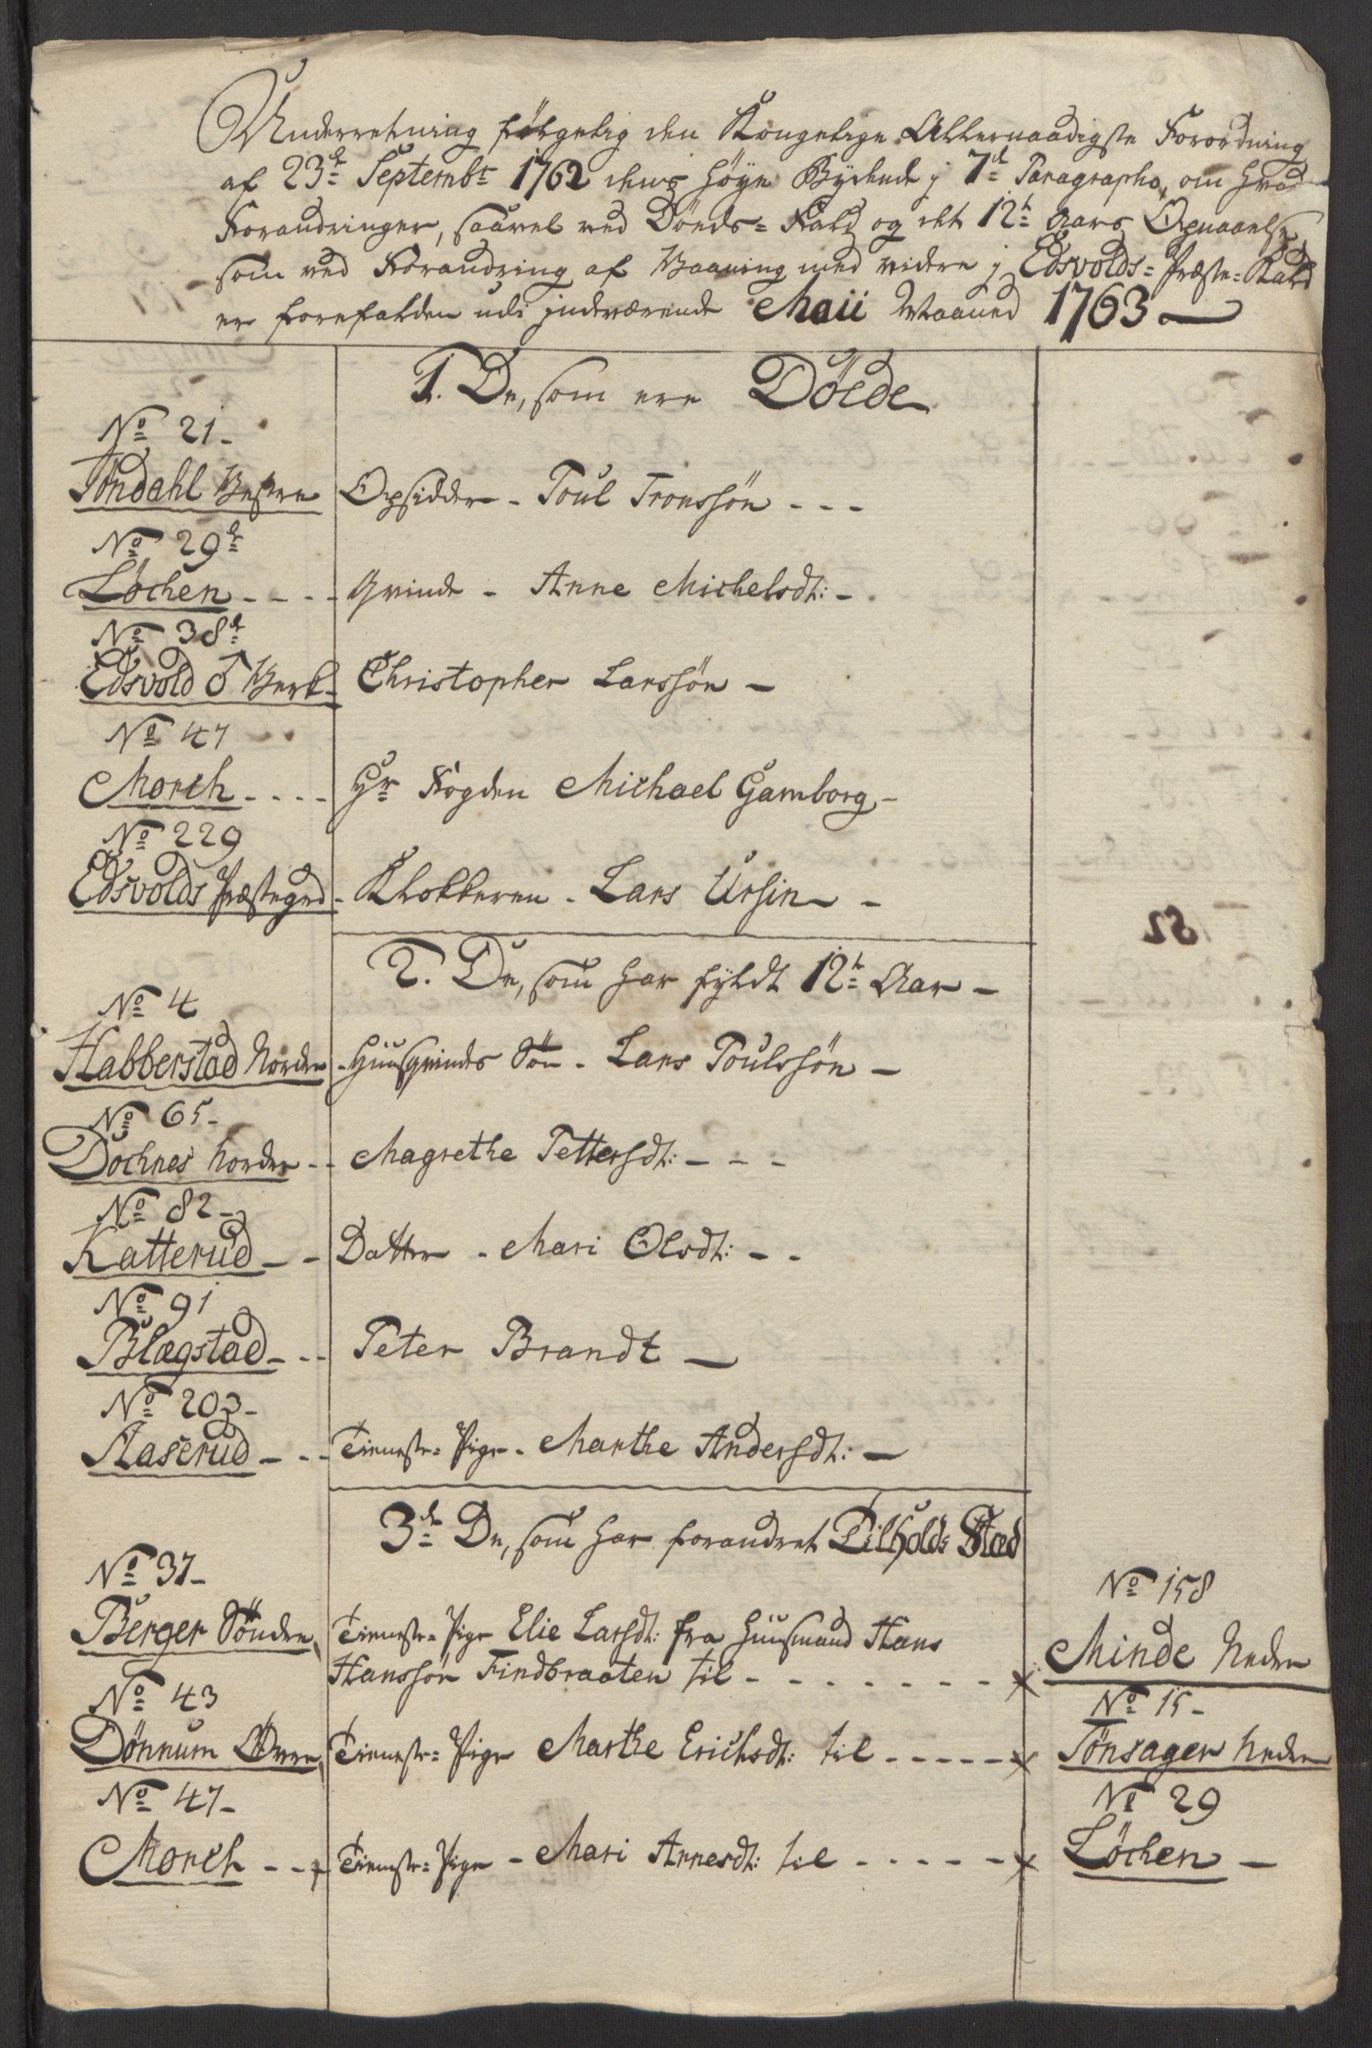 Underretning følgelig den Kongelige Allernaadigste Forordning
af 23de Septembr 1762 dens høye Bydende j 7de Paragrapho, om hvad
Forandringer, saavel ved Döeds-Fald og det 12te Aars Opnaaelse
som ved Forandring af Vaaning med videre j Edsvolds-Præste-Kald
er forefalden udi jndeværende Maii Maaned 1763
1. De, som ere Döede
No 21-
Töndahl Vestre Opsidder - Poul Tronssön - - -
No 29de
Löchen - - - - Qvinde - Anne Michelsdt: -
No 38de
Edsvold ♂ Verk - Christopher Larssön -
No 47
Morch - - - - Hr Fogden Michael Gamborg -
No 229
Edsvolds Præstegrd - Klokkeren - Lars Ursin -
2. De, som har fyldt 12te Aar -
No 4
Habberstad Nordre - Huusqvinds Sön - Lars Poulssön -
No 65-
Dochnes Nordre - - Magrethe Pettersdt: - - -
No 82-
Katterud - - Datter - Mari Olsdt: - -
No 91
Blegstad - - - Peter Brandt -
No 203-
Aaserud - - - Tieneste-Pige - Marthe Andersdt: -
3de De, som har forandret Tilholds Stæd
No 37-
No 158
Berger Söndre Tieneste-Pige Elie Larsdt: fra Huusmand Hans
Hanssön Findbraaten til - - - - - - - - x Minde Nedre
No 43
No 15-
Dönnum Øvre Tieneste-Pige Marthe Erichsdt: til - - - - - x Tönsager Nedre
No 47-
No 29
Morch - - x Tieneste-Pige - Mari Arnesdt: til - - - - - x Löchen -
52